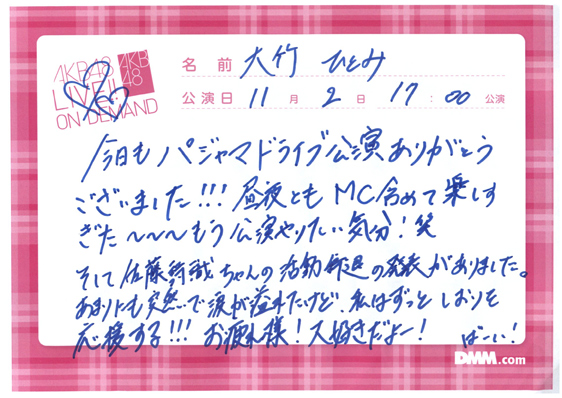 AKB48
LIVE!!
ON DEMAND
AKB
48
名前 大竹 ひとみ
公演日 11月2日 17:00 公演
今日もパジャマドライブ公演ありがとう
ございました!!!昼夜ともMC含めて楽しす
ぎた〜〜〜もう公演やりたい気分!笑
そして佐藤ちゃんの活動の発表がありました。
あまりにも突然で涙が溢れたけど、私はずっとしおりを
応援する!!!お疲れ様!大好きだよー!ばーい!
DMM.com